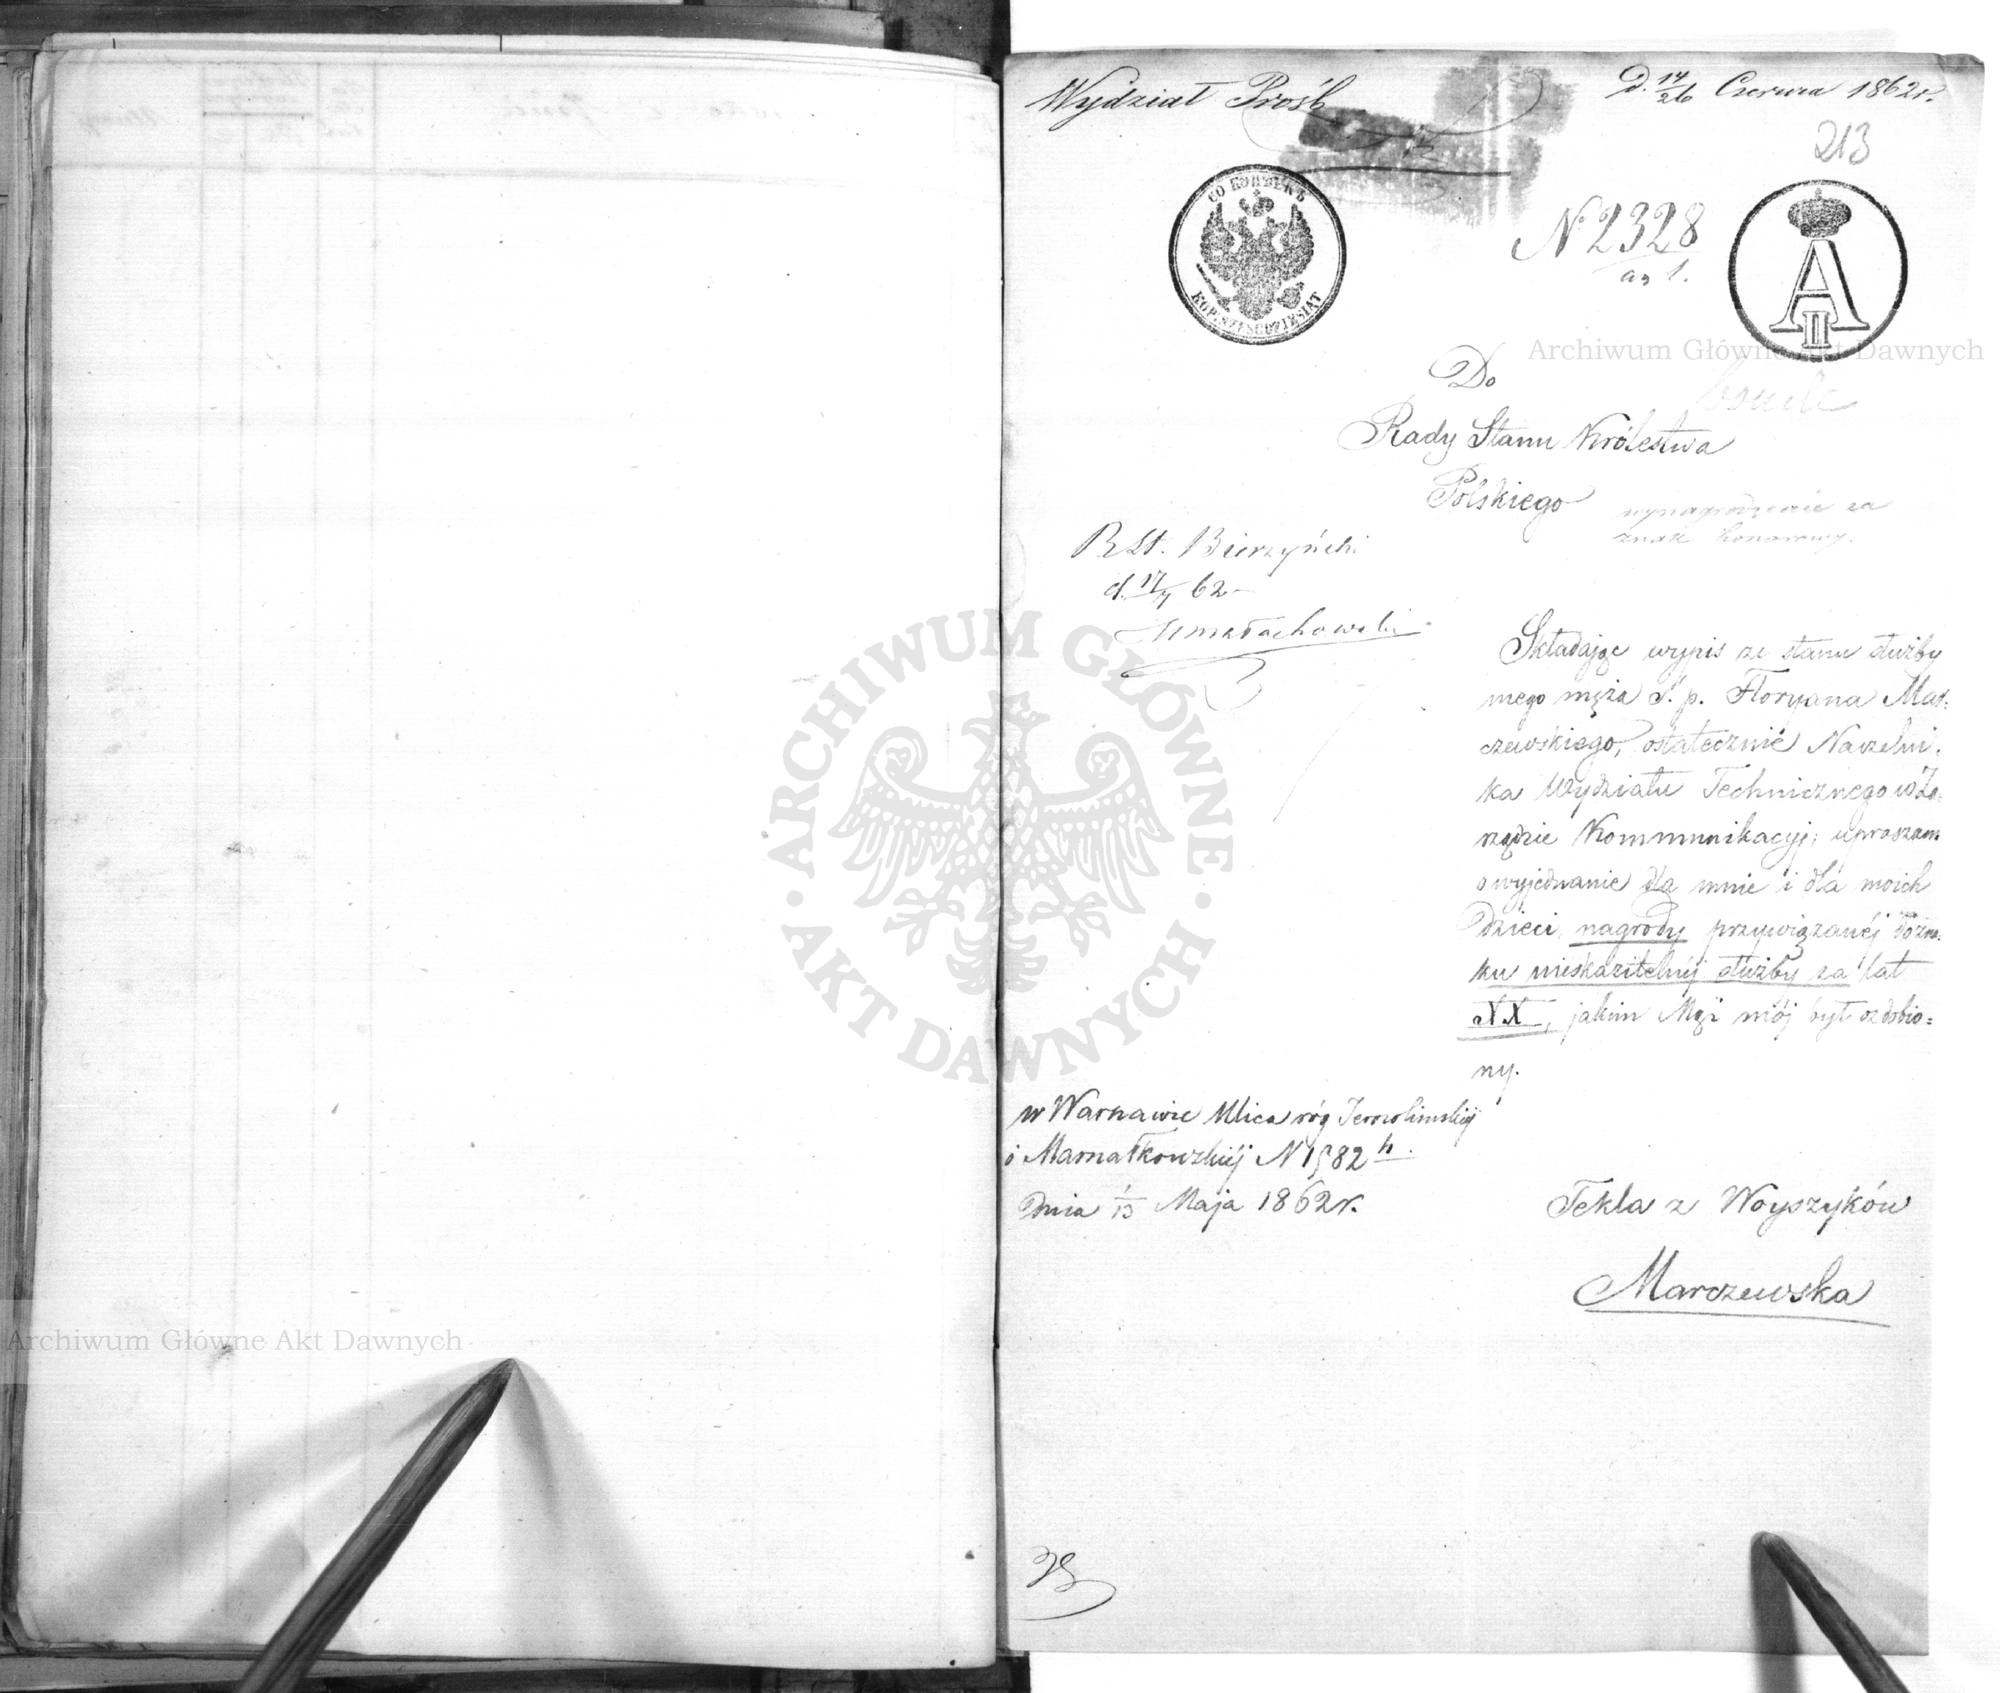 Wydział Próśb
D. 14/26 Czerwca 1862 r.
213
60 КОПѢЕКЪ
KOP. SZESĆDZIESIĄT
N 2328
A II
Do
Rady Stanu Królestwa
Polskiego
wynagrodzenie za
znak honorowy.
R. St. Bierzyński
d. 17/7 62
Małachowski
Składając wypis ze stanu służby
mego męża ś. p. Floryana Mar=
czewskiego, ostatecznie Naczelni=
ka Wydziału Technicznego w Za=
rządzie Kommunikacyj, upraszam
o wyjednanie dla mnie i dla moich
Dzieci, nagrody przywiązanéj do zna=
ku nieskazitelnéj służby za lat
XX, jakim Mąż mój był ozdobio=
ny.
w Warszawie Ulica róg Jerozolimskiéj
i Marszałkowskiéj N 1582 h.
Dnia 1/13 Maja 1862 r.
Tekla z Woyszyków
Marczewska
Archiwum Główne Akt Dawnych
Archiwum Główne Akt Dawnych
ARCHIWUM GŁÓWNE
AKT DAWNYCH